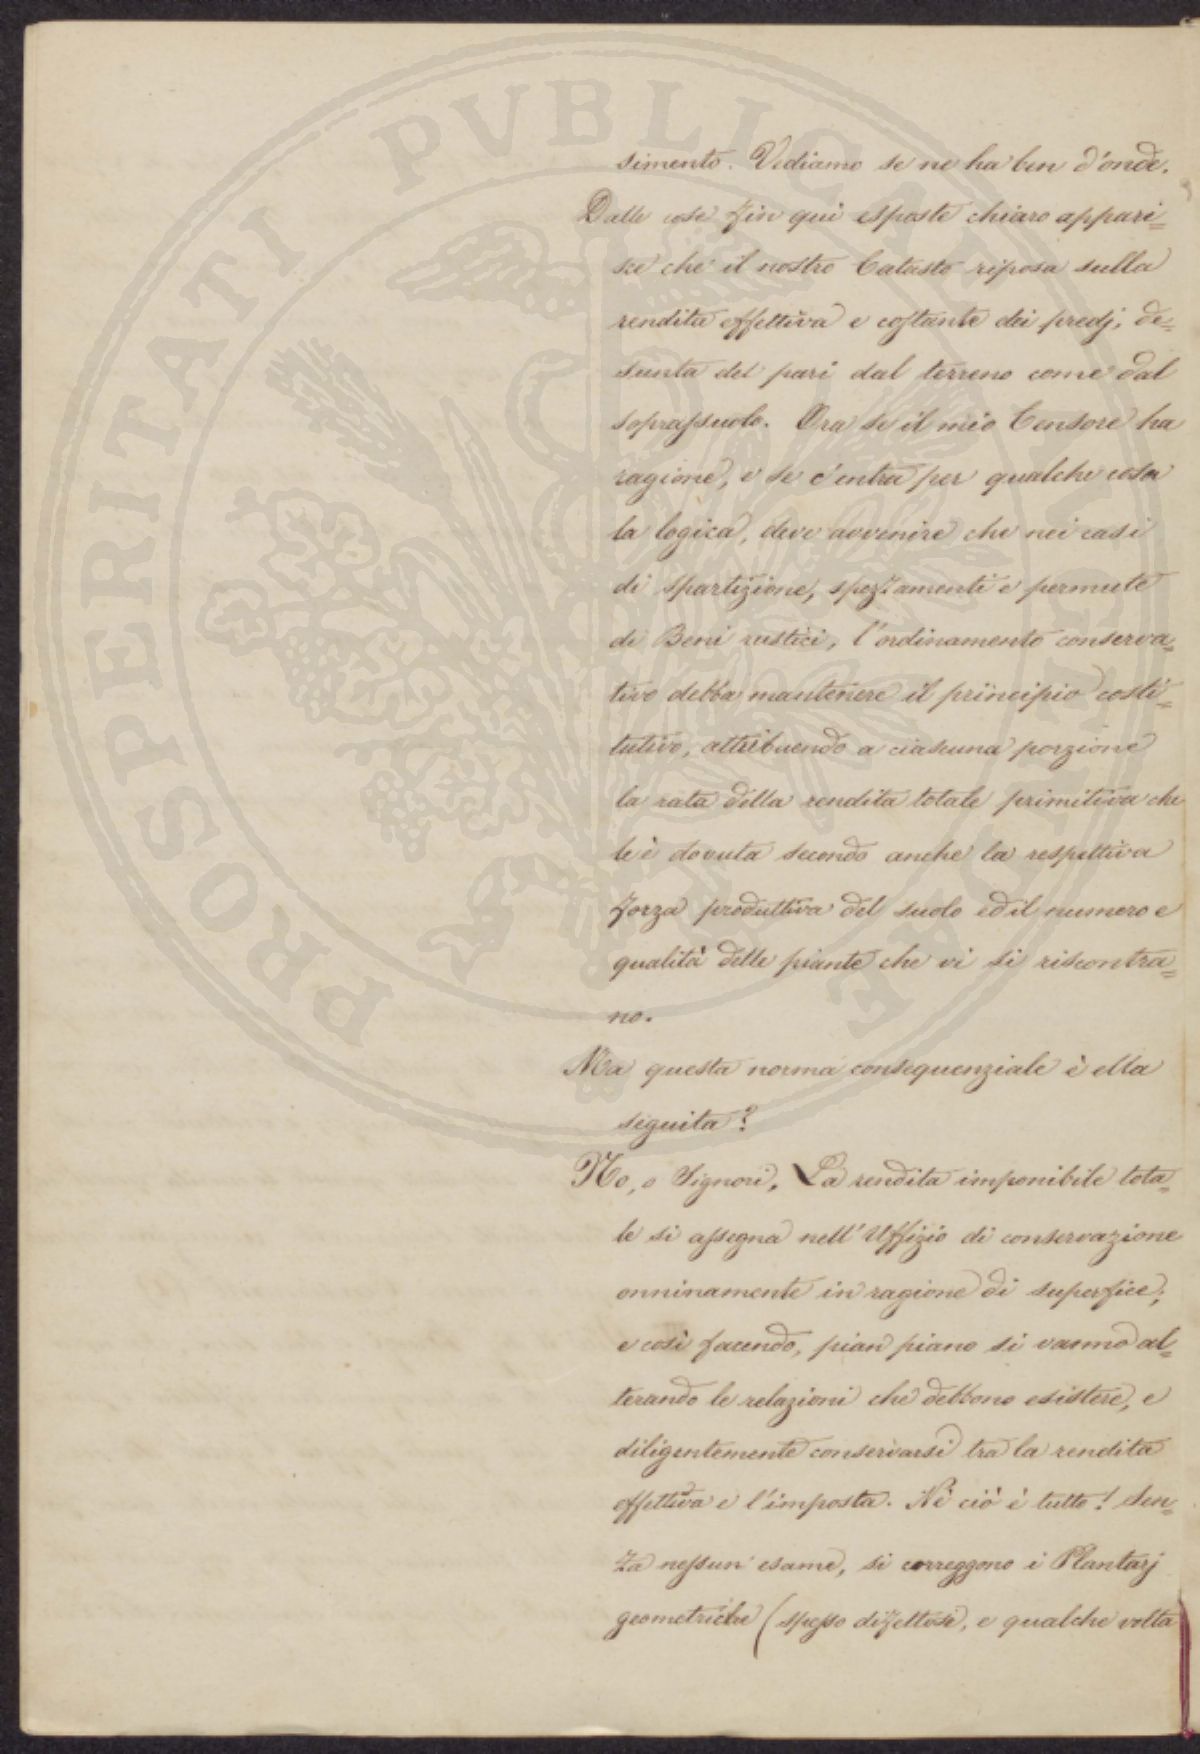 PROSPERITATI PVBLICAE AVGENDAE
simento. Vediamo se ne ha ben d'onde.
Dalle cose fin qui esposte chiaro appari=
sce che il nostro Catasto riposa sulla
rendita effettiva e costante dei predj, de=
sunta del pari dal terreno come dal
soprassuolo. Ora se il mio Censore ha
ragione, e se c'entra per qualche cosa
la logica, deve avvenire che nei casi
di spartizione, spezzamenti e permute
di Beni rustici, l'ordinamento conserva=
tivo debba mantenere il principio costi=
tutivo, attribuendo a ciascuna porzione
la rata della rendita totale primitiva che
le è dovuta secondo anche la respettiva
forza produttiva del suolo ed il numero e
qualità delle piante che vi si riscontra=
no.
Ma questa norma consequenziale è ella
seguita?
No, o Signori, La rendita imponibile tota=
le si assegna nell'Uffizio di conservazione
onninamente in ragione di superfice;
e così facendo, pian piano si vanno al=
terando le relazioni che debbono esistere, e
diligentemente conservarsi tra la rendita
effettiva e l'imposta. Nè ciò è tutto! Sen=
za nessun esame, si correggono i Plantarj
geometriche (spesso difettosi, e qualche volta